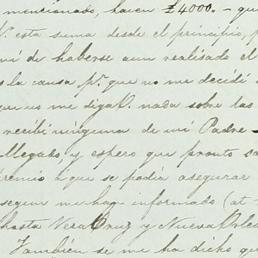 mencionado, hacen £4000. - que
V. esta suma desde el principio, p
mi de haberse aun realisado el
es la causa pr. que no me decidi á
que no me diga V. nada sobre las
recibi ninguna de mi Padre
llegado, y espero que pronto sa
premio á que se podia asegurar
segun me hay informado (at -
hasta Vera Cruz y Nueva Orlea
Tambien se me ha dicho que